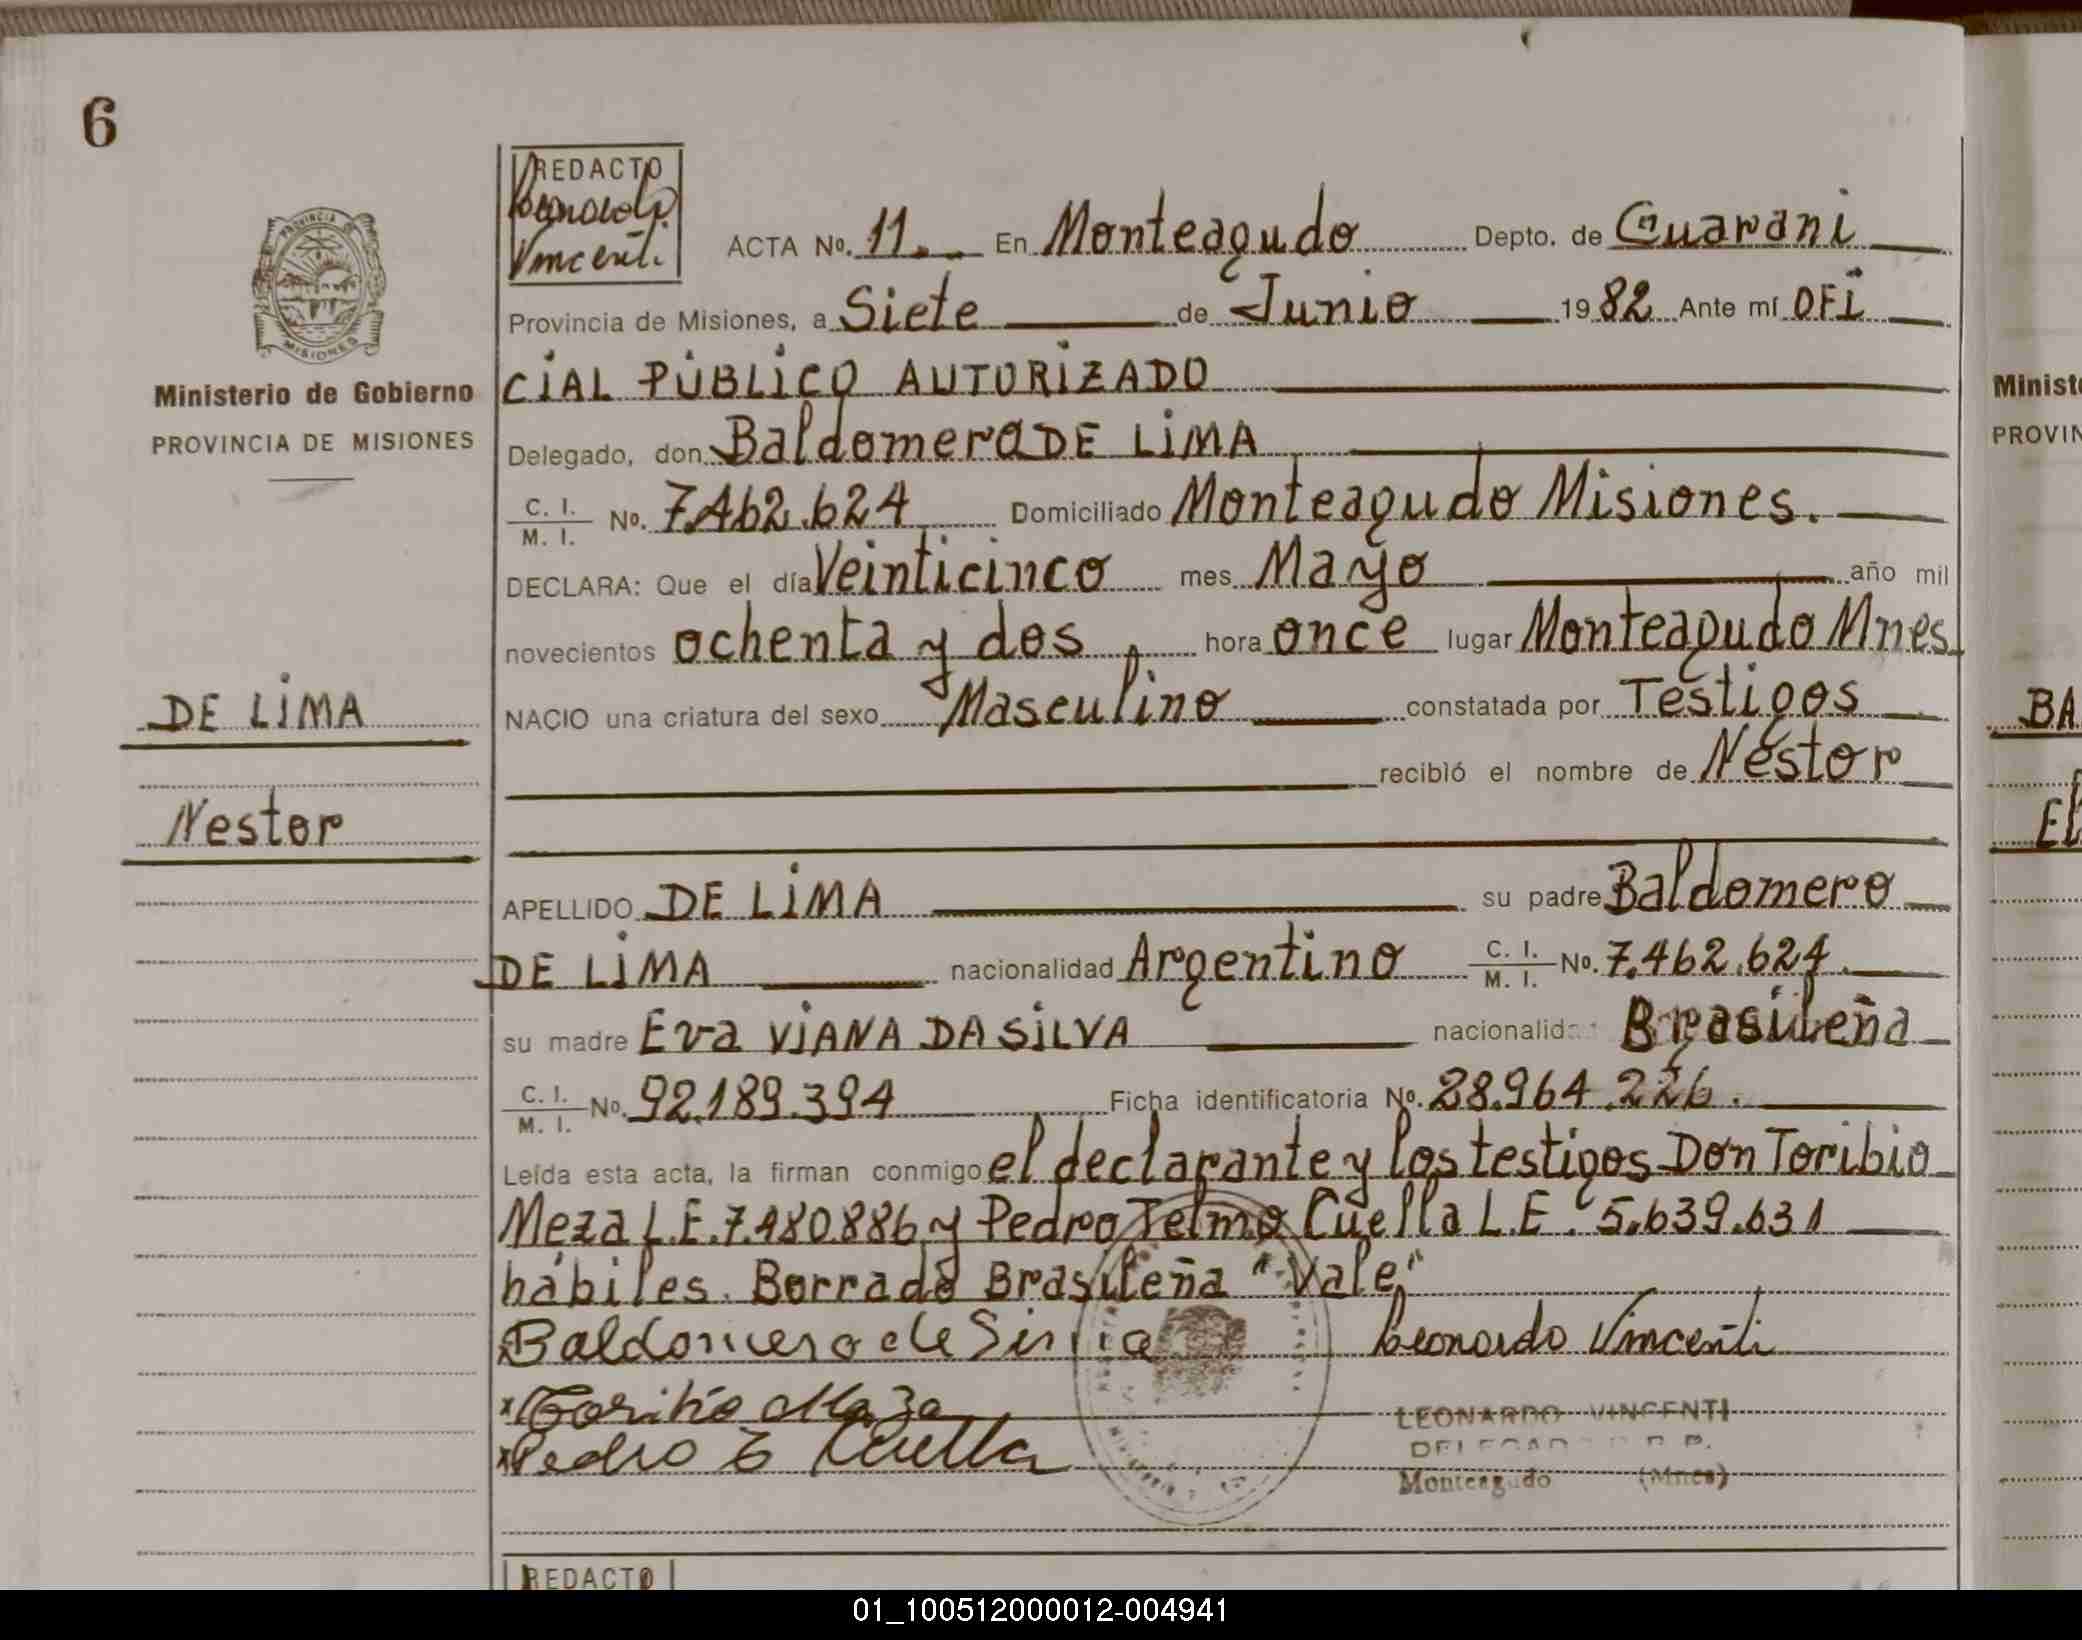 6
REDACTO
Leonardo
Vincenti
ACTA No. 11. En Monteagudo Depto. de Guarani
Provincia de Misiones, a Siete de Junio 1982 Ante mí OFI
CIAL PÚBLICO AUTORIZADO
Delegado, don Baldomero DE LIMA
C. I.
M. I. No. 7.462.624 Domiciliado Monteagudo Misiones.
DECLARA: Que el día Veinticinco mes Mayo año mil
novecientos ochenta y dos, hora once lugar Monteagudo Mnes
NACIO una criatura del sexo Masculino constatada por Testigos
recibió el nombre de Néstor
APELLIDO DE LIMA su padre Baldomero
DE LIMA nacionalidad Argentino C. I.
M. I. No. 7.462.624.
su madre Eva VIANA DA SILVA nacionalid Brasileña
C. I.
M. I. No. 92.189.394 Ficha identificatoria No. 28.964.226.
Leída esta acta, la firman conmigo el declarante y los testigos Don Toribio
Meza L.E. 7.480.886 y Pedro Telmo Cuella L.E. 5.639.631
hábiles. Borrado Brasileña "Vale"
Baldomero de Lima Leonardo Vincenti
x Toribio Meza
LEONARDO VINCENTI
x Pedro T Cuella
Monteagudo (Mnes)
REDACTO
PROVINCIA
MISIONES
Ministerio de Gobierno
PROVINCIA DE MISIONES
DE LIMA
Nestor
Minist
PROVIN
BA
El
01_100512000012-004941